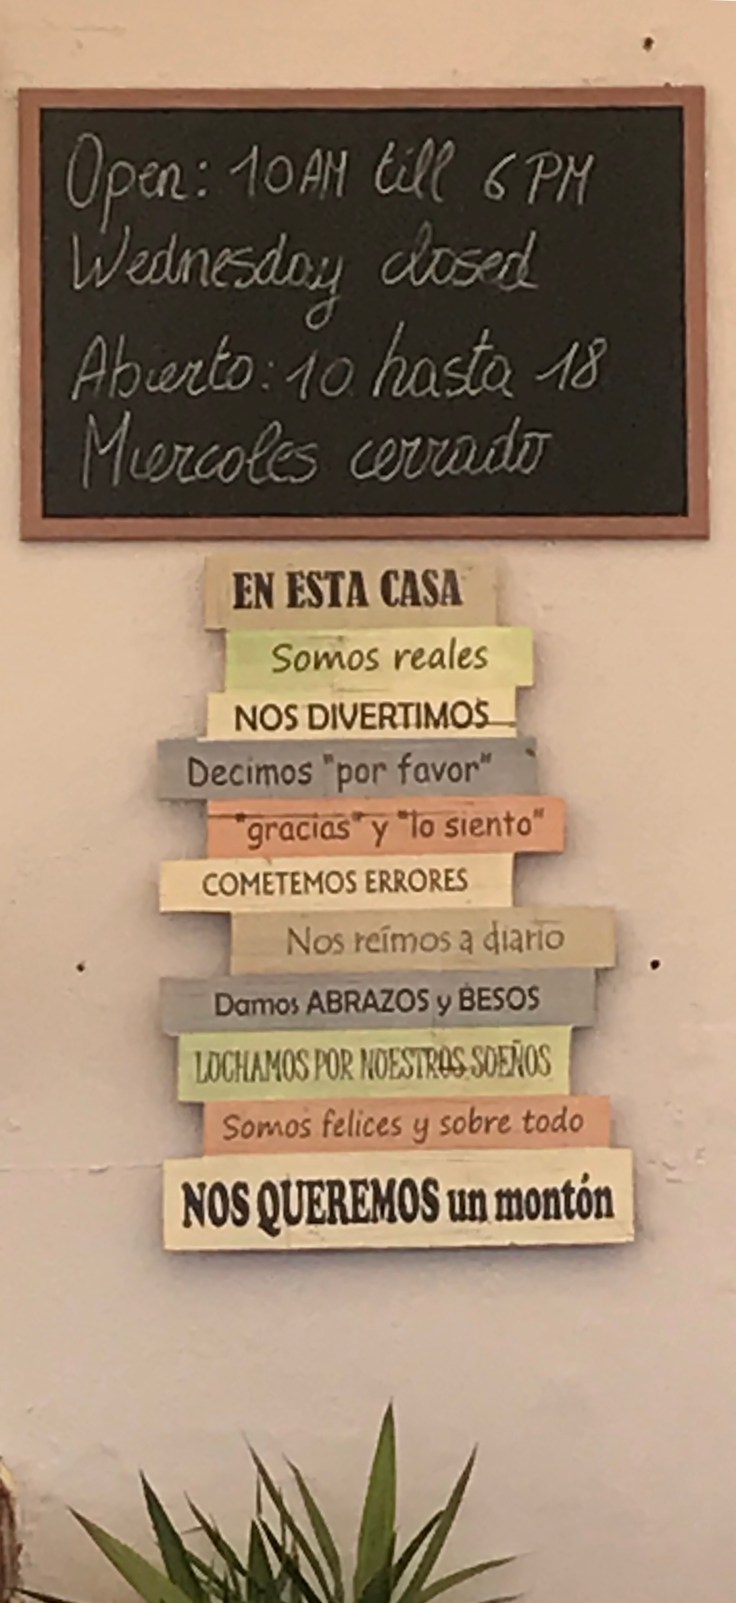 Open: 10 AM till 6 PM
Wednesday closed
Abierto: 10 hasta 18
Miercoles cerrado
EN ESTA CASA
Somos reales
NOS DIVERTIMOS
Decimos "por favor"
"gracias" y "lo siento"
COMETEMOS ERRORES
Nos reímos a diario
Damos ABRAZOS y BESOS
LUCHAMOS POR NUESTROS SUEÑOS
Somos felices y sobre todo
NOS QUEREMOS un montón